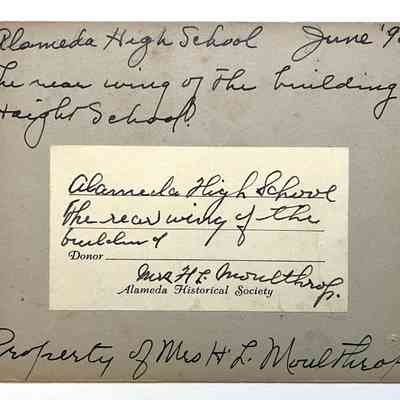 Alameda High School June '9
The rear wing of the building
Haight School.
Alameda High School
The rear wing of the
building
Donor
Mrs H L Moulthrop.
Alameda Historical Society
Property of Mrs H. L. Moulthrop